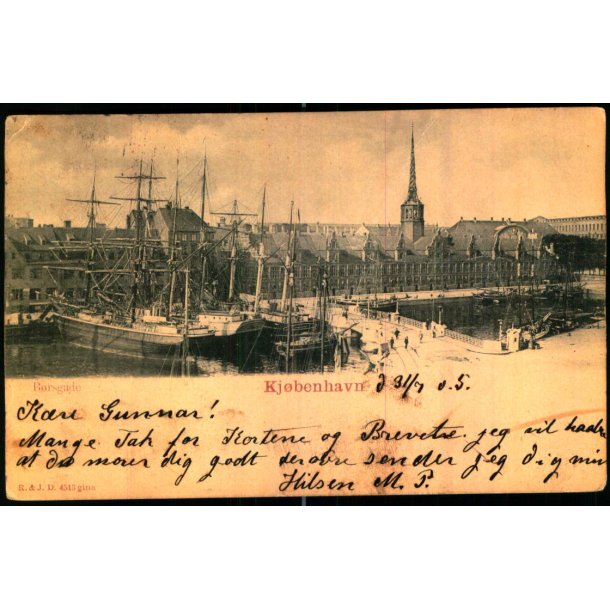 Børsgade
Kjøbenhavn d 31/7 0.5.
Kære Gunnar!
Mange Tak for Kortene og Brevet. jeg vil haabe
at du morer dig godt derovre sender jeg dig min
Hilsen M. P.
R. & J. D. 4515 gina